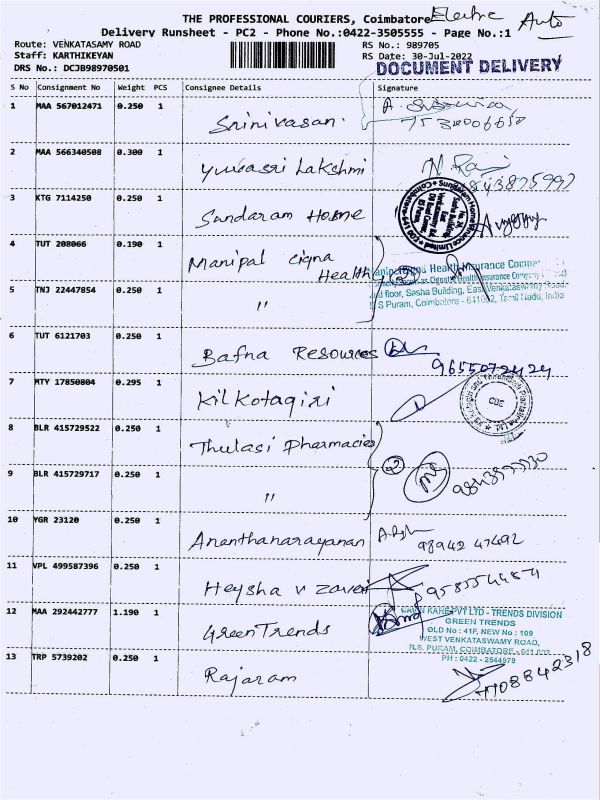 THE PROFESSIONAL COURIERS, Coimbatore Electric Auto
Delivery Runsheet - PC2 - Phone No.:0422-3505555 - Page No.:1
Route: VENKATASAMY ROAD RS No.: 989705
Staff: KARTHIKEYAN RS Date: 30-Jul-2022
DRS No.: DCJB98970501 DOCUMENT DELIVERY
S No Consignment No Weight PCS Consignee Details Signature
1 MAA 567012471 0.250 1 Srinivasan.
2 MAA 566340508 0.300 1 Yuvasri Lakshmi
3 KTG 7114250 0.250 1 Sundaram Home
4 TUT 208066 0.190 1 Manipal Cigna Health
Health Insurance
5 TNJ 22447854 0.250 1 "
floor, Sasha Building, East Venkataswamy Road,
S Puram, Coimbatore - 611002, Tamil Nadu, India
6 TUT 6121703 0.250 1 Bafna Resources
9655072424
7 MTY 17850804 0.295 1 Kil Kotagiri
CBE
8 BLR 415729522 0.250 1 Thulasi Pharmacies
9 BLR 415729717 0.250 1 "
10 YGR 23120 0.250 1 Ananthanarayanan
98942 47492
11 VPL 499587396 0.250 1 Heysha V Zaveri
12 MAA 292442777 1.190 1 Green Trends
PVT LTD - TRENDS DIVISION
GREEN TRENDS
OLD No : 41F, NEW No : 109
WEST VENKATASWAMY ROAD,
R.S. PURAM, COIMBATORE - 641 002
PH : 0422 - 2544979
13 TRP 5739202 0.250 1 Rajaram